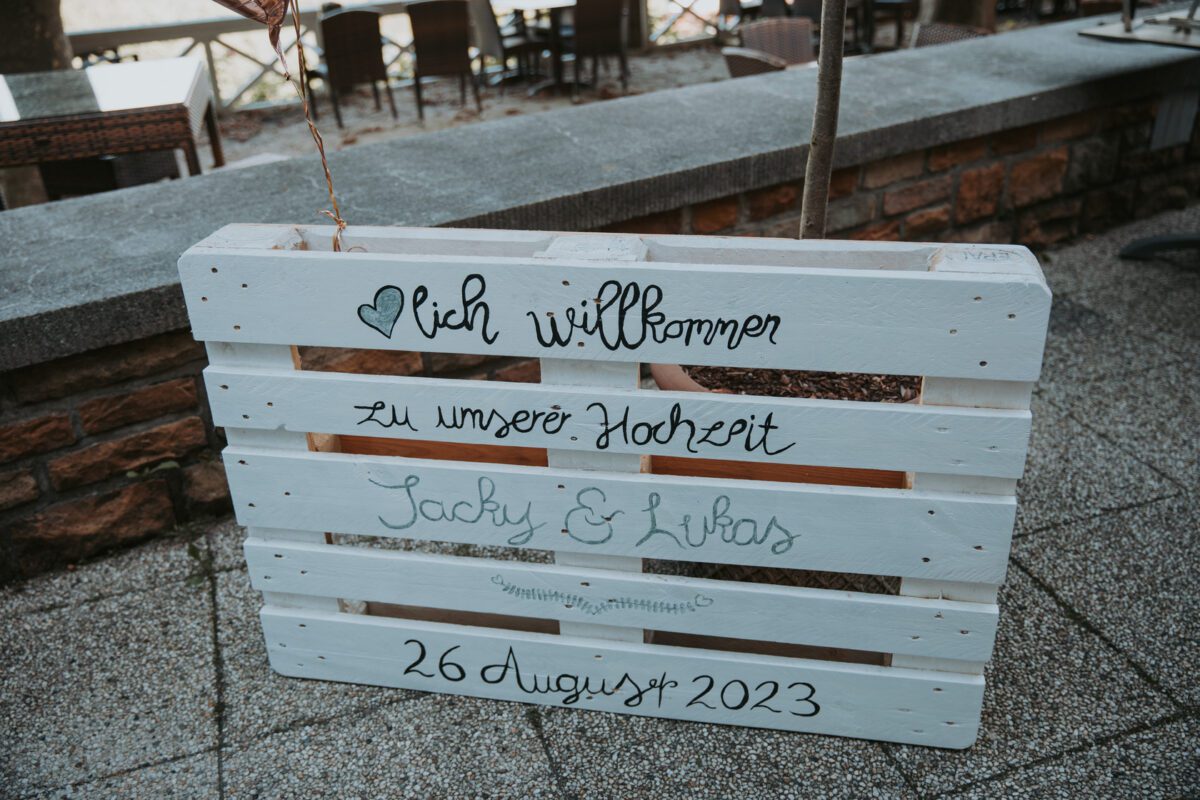 ♥lich willkommen
zu unserer Hochzeit
Jacky & Lukas
26 August 2023